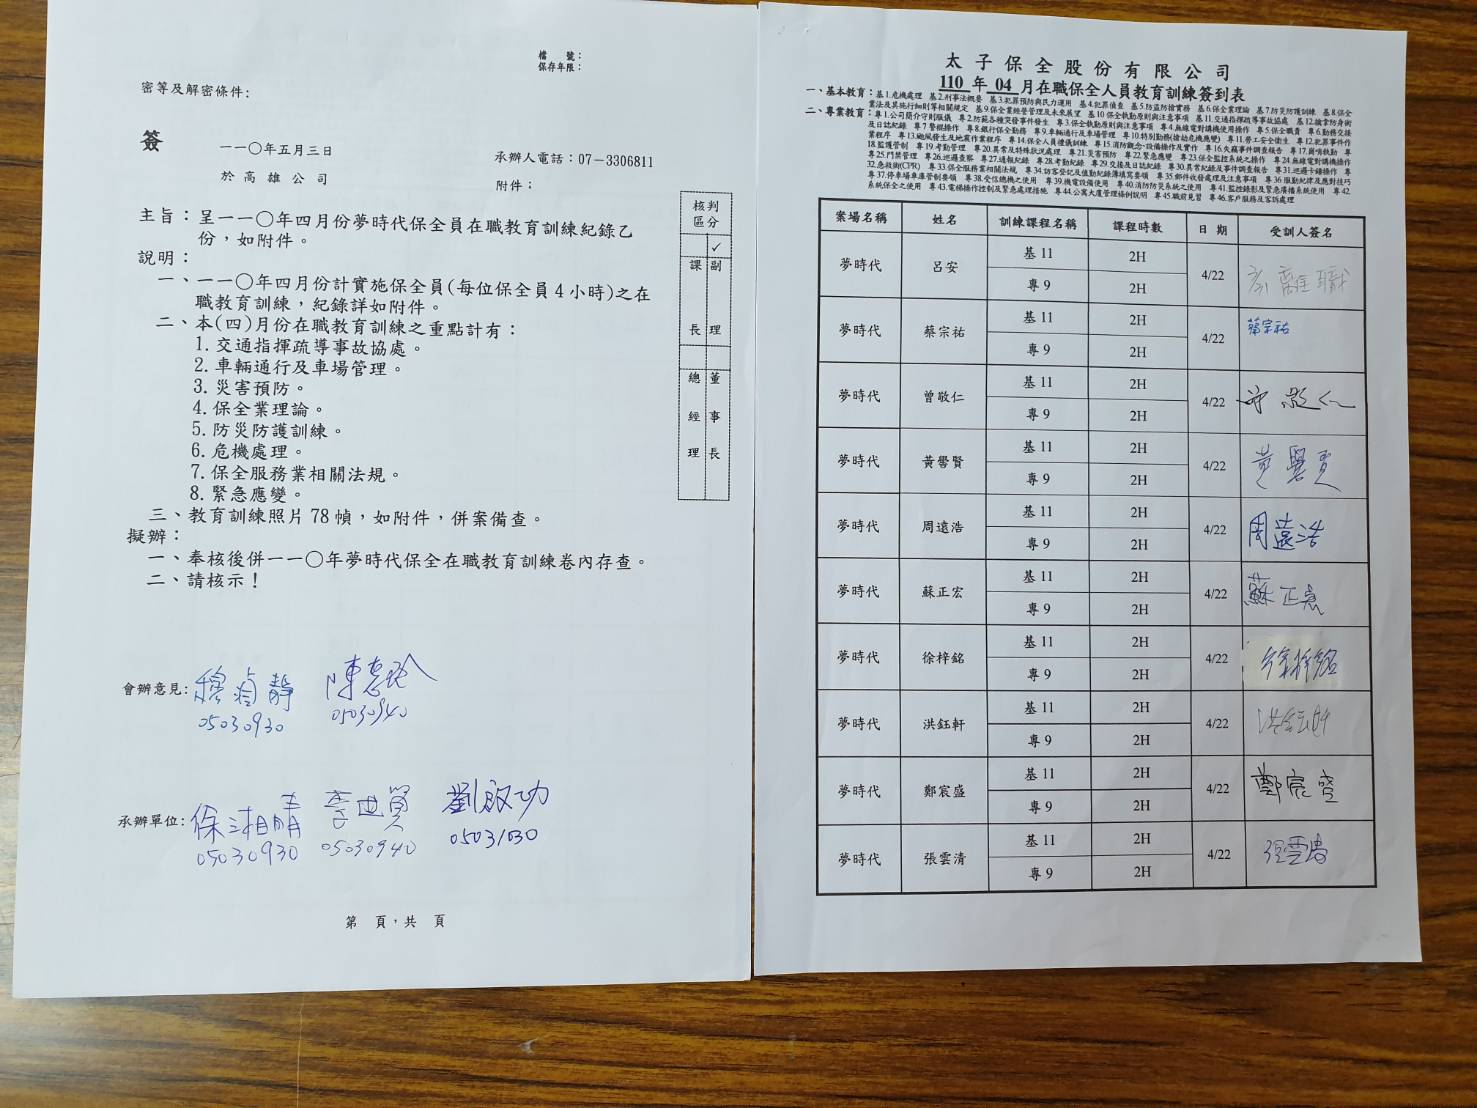 檔　　號：
保存年限：
密等及解密條件：
簽
一一○年五月三日
於高雄公司
承辦人電話：07－3306811
附件：
核判
區分
✓
課長
副理
總經理
董事長
主旨：呈一一○年四月份夢時代保全員在職教育訓練紀錄乙
份，如附件。
說明：
一、一一○年四月份計實施保全員(每位保全員4小時)之在
職教育訓練，紀錄詳如附件。
二、本(四)月份在職教育訓練之重點計有：
1.交通指揮疏導事故協處。
2.車輛通行及車場管理。
3.災害預防。
4.保全業理論。
5.防災防護訓練。
6.危機處理。
7.保全服務業相關法規。
8.緊急應變。
三、教育訓練照片78幀，如附件，併案備查。
擬辦：
一、奉核後併一一○年夢時代保全在職教育訓練卷內存查。
二、請核示！
會辦意見：
05030930 05030940
承辦單位：徐湘晴 李世貿 劉啟功
05030930 05030940 05031030
第　頁，共　頁
太子保全股份有限公司
110 年 04 月在職保全人員教育訓練簽到表
一、基本教育：基1.危機處理 基2.刑事法概要 基3.犯罪預防與民力運用 基4.犯罪偵查 基5.防盜防搶實務 基6.保全業理論 基7.防災防護訓練 基8.保全
業法及其施行細則等相關規定 基9.保全業經營管理及未來展望 基10.保全執勤原則與注意事項 基11.交通指揮疏導事故協處 基12.擒拿防身術
二、專業教育：專1.公司簡介守則服儀 專2.防範各種突發事件發生 專3.保全執勤原則與注意事項 專4.無線電對講機使用操作 專5.保全職責 專6.勤務交接
及日誌紀錄 專7.警棍操作 專8.銀行保全勤務 專9.車輛通行及車場管理 專10.特別勤務(搶劫危機應變) 專11.勞工安全衛生 專12.犯罪事件作
業程序 專13.颱風發生及地震作業程序 專14.保全人員禮儀訓練 專15.消防觀念、設備操作及實作 專16.火竊事件調查報告 專17.財物執勤 專
18.監護管制 專19.考勤管理 專20.異常及特殊狀況處理 專21.災害預防 專22.緊急應變 專23.保全監控系統之操作 專24.無線電對講機操作
專25.門禁管理 專26.巡邏查察 專27.通報紀錄 專28.考勤紀錄 專29.交接及日誌紀錄 專30.異常紀錄及事件調查報告 專31.巡邏卡鐘操作 專
32.急救術(CPR) 專33.保全服務業相關法規 專34.訪客登記及值勤紀錄簿填寫要領 專35.郵件收發處理及注意事項 專36.服勤紀律及應對技巧
專37.停車場車庫管制要領 專38.受信總機之使用 專39.機電設備使用 專40.消防防災系統之使用 專41.監控錄影及緊急廣播系統使用 專42.
系統保全之使用 專43.電梯操作控制及緊急處理措施 專44.公寓大廈管理條例說明 專45.職前見習 專46.客戶服務及客訴處理
案場名稱 姓名 訓練課程名稱 課程時數 日 期 受訓人簽名
夢時代 呂安 基11 2H 4/22 離職
專9 2H
夢時代 蔡宗祐 基11 2H 4/22 蔡宗祐
專9 2H
夢時代 曾敬仁 基11 2H 4/22
專9 2H
夢時代 黃譽賢 基11 2H 4/22 黃譽賢
專9 2H
夢時代 周遠浩 基11 2H 4/22 周遠浩
專9 2H
夢時代 蘇正宏 基11 2H 4/22 蘇正宏
專9 2H
夢時代 徐梓銘 基11 2H 4/22 徐梓銘
專9 2H
夢時代 洪鈺軒 基11 2H 4/22 洪鈺軒
專9 2H
夢時代 鄭宸盛 基11 2H 4/22 鄭宸盛
專9 2H
夢時代 張雲清 基11 2H 4/22 張雲清
專9 2H